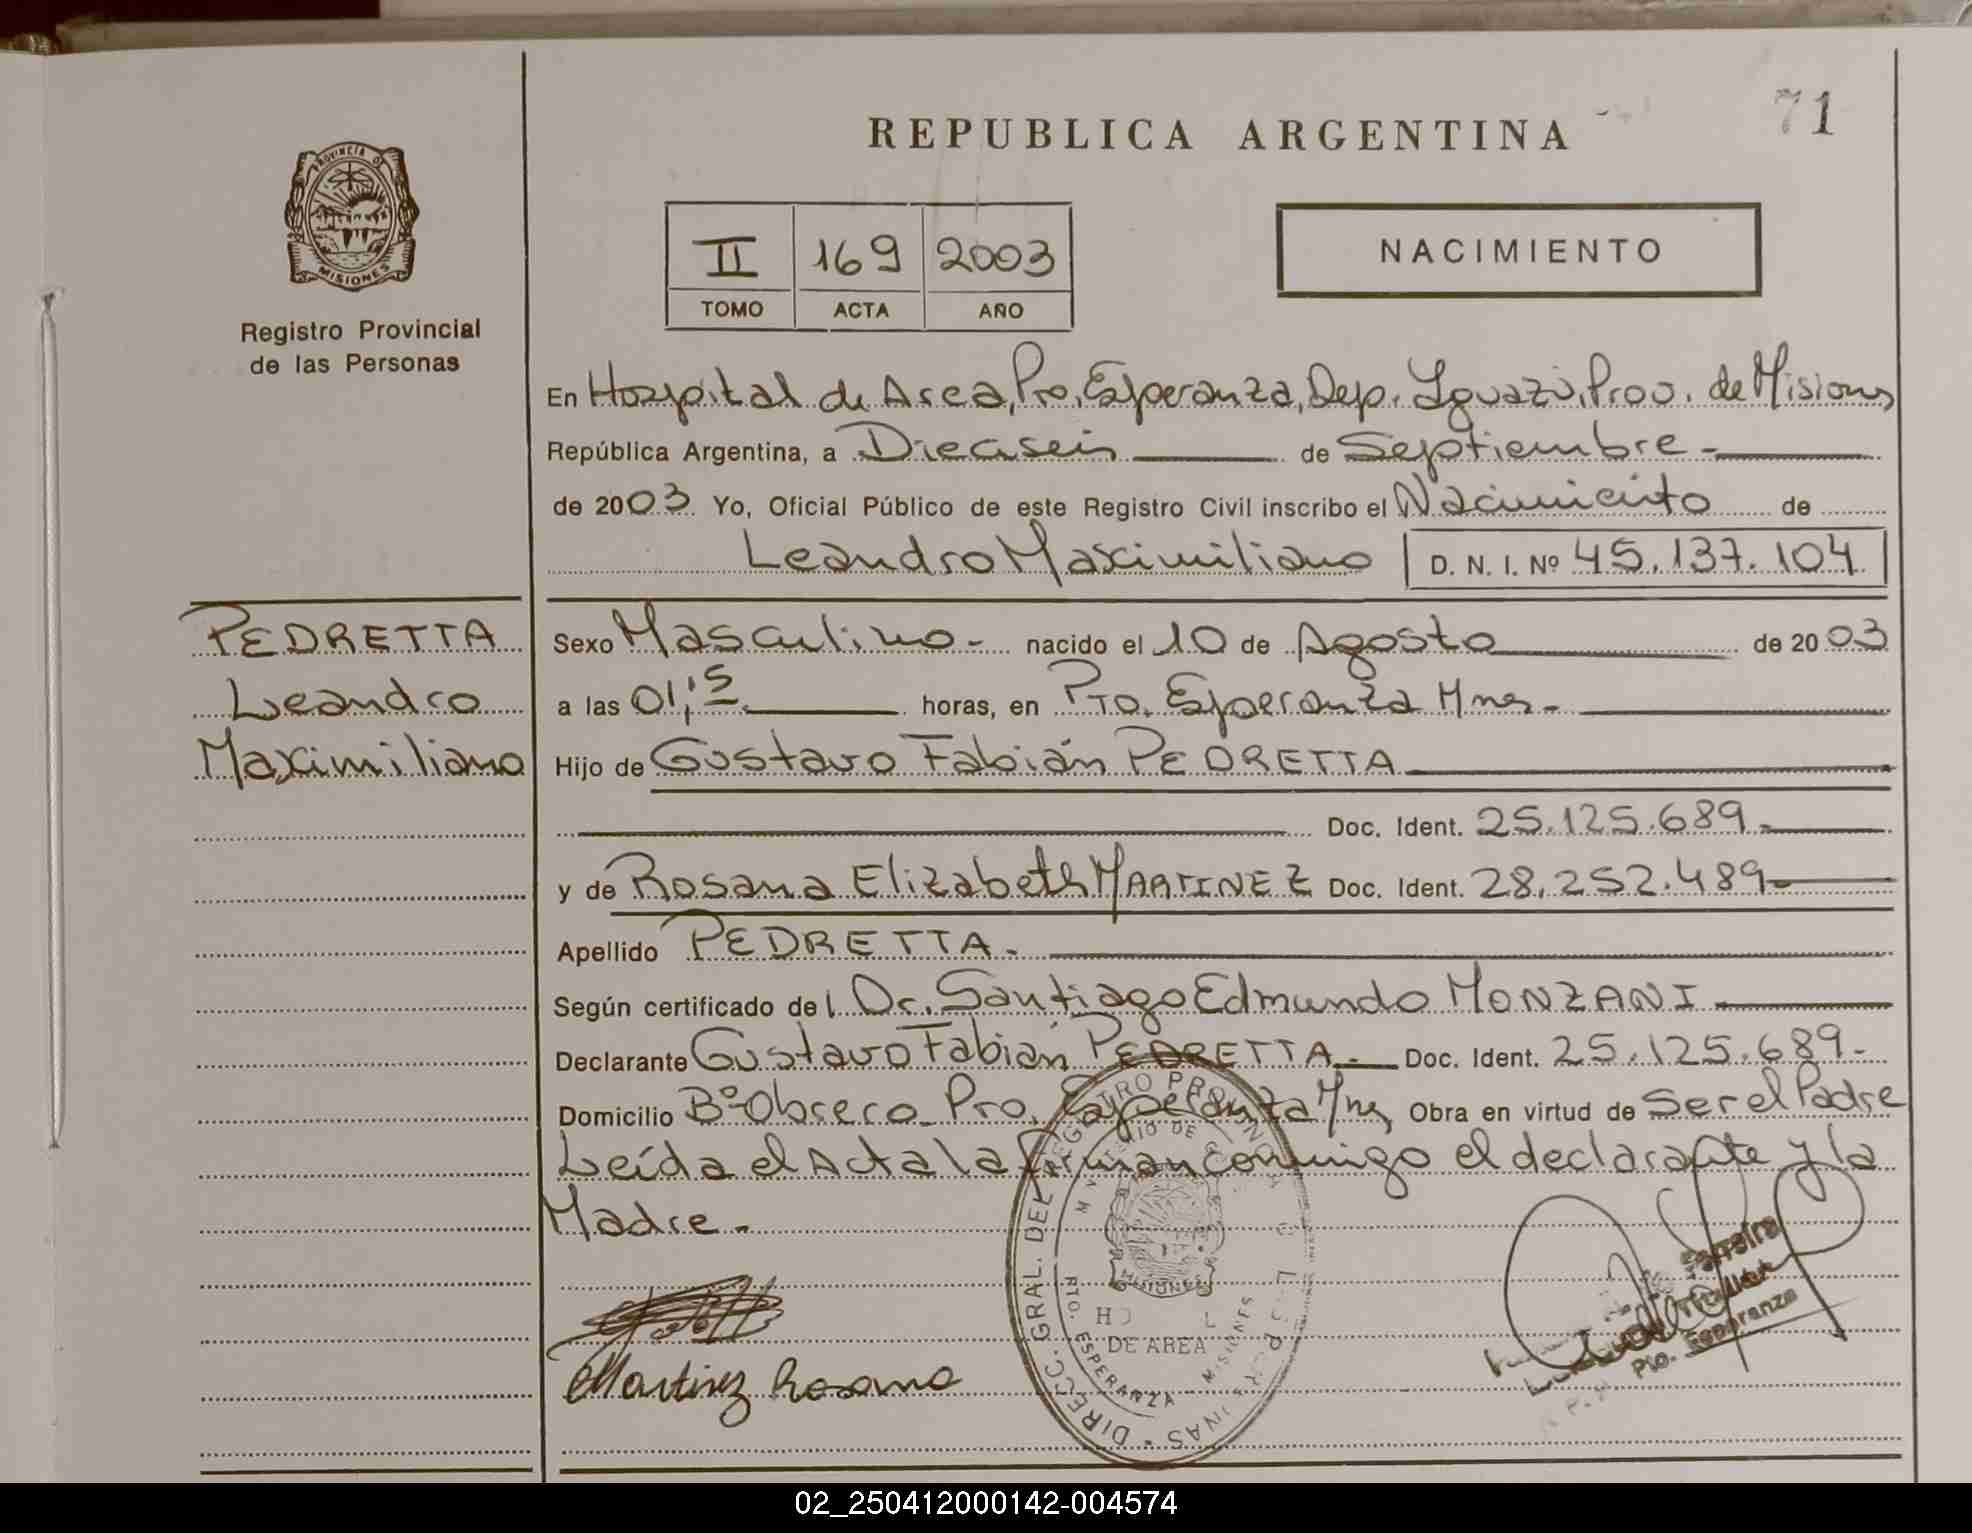 71
REPUBLICA ARGENTINA
PROVINCIA DE
MISIONES
Registro Provincial
de las Personas
II 169 2003
TOMO ACTA AÑO
NACIMIENTO
En Hospital de Area, Pto, Esperanza, Dep. Iguazú, Prov. de Misiones
República Argentina, a Dieciseis de Septiembre -
de 2003 Yo, Oficial Público de este Registro Civil inscribo el Nacimiento de
Leandro Maximiliano D. N. I. Nº 45.137.104
PEDRETTA
Leandro
Maximiliano
Sexo Masculino - nacido el 10 de Agosto de 2003
a las 01,15 horas, en Pto. Esperanza Mnes -
Hijo de Gustavo Fabián PEDRETTA
Doc. Ident. 25.125.689 -
y de Rosana Elizabeth MARTINEZ Doc. Ident. 28.252.489 -
Apellido PEDRETTA -
Según certificado del Dr. Santiago Edmundo MONZANI
Declarante Gustavo Fabián PEDRETTA - Doc. Ident. 25.125.689 -
Domicilio Bº Obrero - Pto. Esperanza Mnes Obra en virtud de Ser el Padre
Leída el Acta la firman conmigo el declarante y la
Madre -
DIRECC. GRAL. DEL REGISTRO PROVINC
DE AREA
PTO. ESPERANZA - MISIONES
MISIONES
Martinez Rosana
Pto. Esperanza
02_250412000142-004574